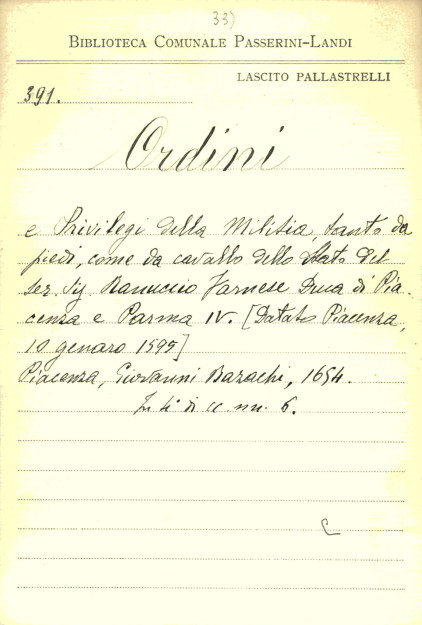 33)
BIBLIOTECA COMUNALE PASSERINI-LANDI
LASCITO PALLASTRELLI
391.
Ordini
e Privilegi della Milizia, tanto da
piedi, come da cavallo dello Stato del
ser. Sig. Ranuccio Farnese Duca di Pia-
cenza e Parma IV. [Datato Piacenza,
10 genaro 1595]
Piacenza, Giovanni Bazachi, 1654.
In 4° di cc. nn. 6.